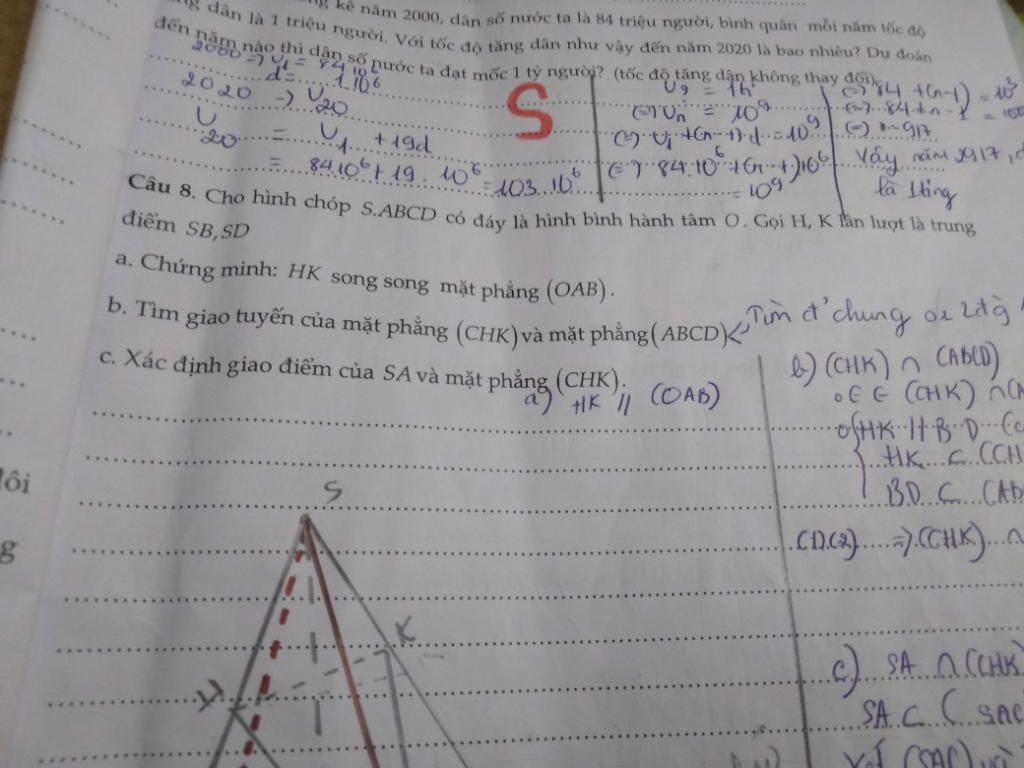 kê năm 2000, dân số nước ta là 84 triệu người, bình quân mỗi năm tốc độ
dân là 1 triệu người. Với tốc độ tăng dân như vậy đến năm 2020 là bao nhiêu? Dự đoán
đến năm nào thì dân số nước ta đạt mốc 1 tỷ người? (tốc độ tăng dân không thay đổi)
2000 => U1 = 84.10^6
d = 1.10^6
2020 -> U20
U20 = U1 + 19d
= 84.10^6 + 19.10^6 = 103.10^6
S
(=) Un = 10^9
(=) U1 + (n-1).d = 10^9
(=) 84.10^6 + (n-1)10^6
= 10^9
(=) 84 + (n-1) = 10^3
(=) 84 + n - 1 =
(=) n = 917
Vậy năm 2917
là 1 tỉng
Câu 8. Cho hình chóp S.ABCD có đáy là hình bình hành tâm O. Gọi H, K lần lượt là trung
điểm SB,SD
a. Chứng minh: HK song song mặt phẳng (OAB).
b. Tìm giao tuyến của mặt phẳng (CHK) và mặt phẳng (ABCD)
Tìm đ' chung
c. Xác định giao điểm của SA và mặt phẳng (CHK).
a) HK // (OAB)
b) (CHK) ∩ (ABCD)
∈ (CHK) ∩
HK // BD
HK ⊂ (CH
BD ⊂ (AB
(1).(2) => (CHK) ∩
c) SA ∩ (CHK)
SA ⊂ (SAC
(SAC) và
ôi
g
S
K
H